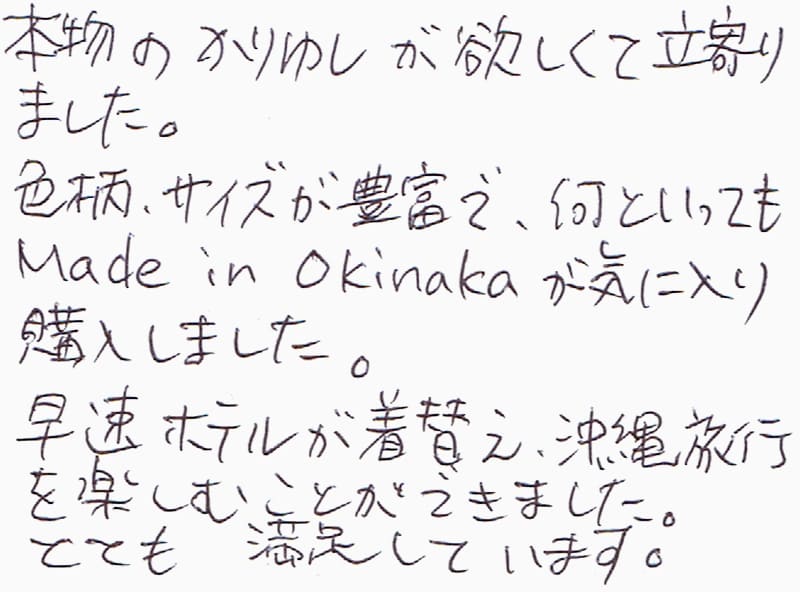 本物のかりゆしが欲しくて立寄り
ました。
色柄、サイズが豊富で、何といっても
Made in Okinakaが気に入り
購入しました。
早速ホテルが着替え、沖縄旅行
を楽しむことができました。
とても 満足しています。